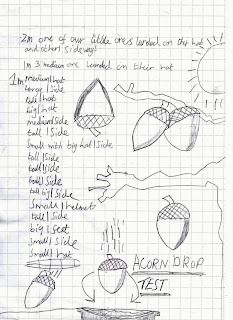 2m one of our little ones landed on their hat
and others sideways
1m 3 medium one landed on their hat
1m medium/hat
large/side
tall/hat
big/hat
medium/side
tall/side
Small with big hat/side
tall/side
tall/side
small/side
tall big/side
small/helmet
tall/side
big/seat
small/side
small/hat
ACORN DROP
TEST